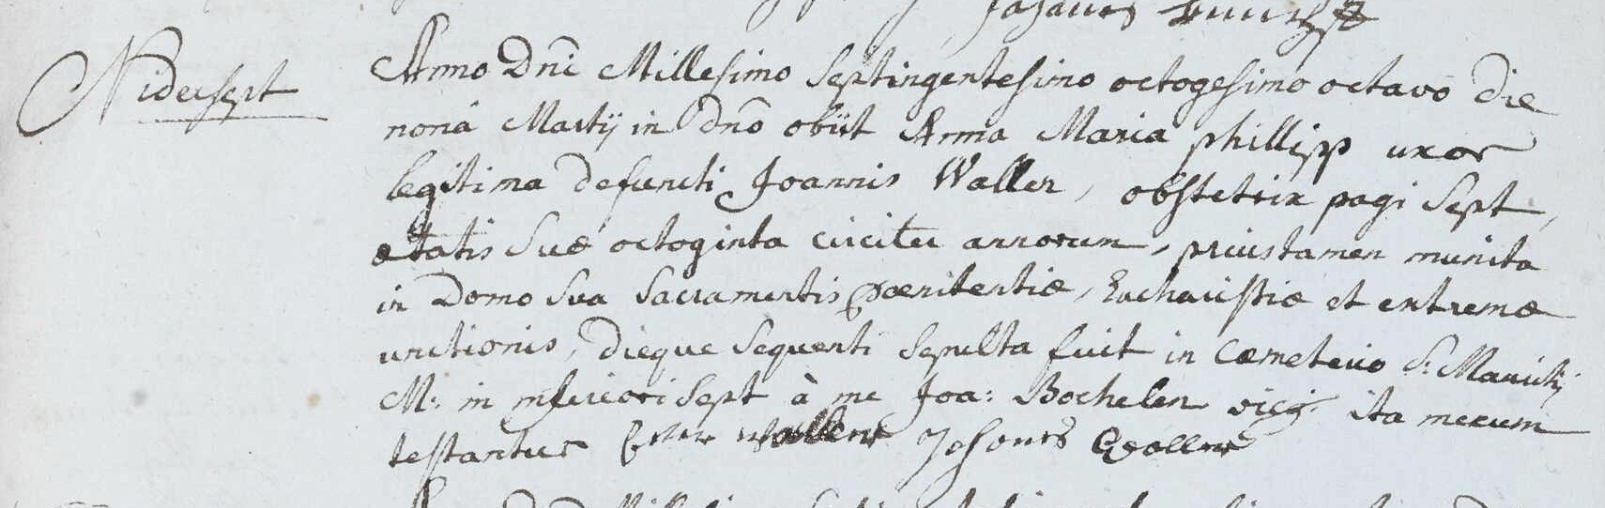 Nidersept
Anno Dni Millesimo Septingentesimo octogesimo octavo Die
nonâ Martij in dno obiit Anna Maria phillipp uxor
legitima defuncti Joannis Waller, obstetrix pagi Sept,
ætatis Suæ octoginta circiter annorum, prius tamen munita
in Domo Sua Sacramentis pœnitentiæ, Eucharistiæ et extremæ
unctionis, Dieque Sequenti Sepulta fuit in Cœmeterio S: Mauritij
M: in inferiori Sept à me Joa: Bochelen ita mecum
testantur